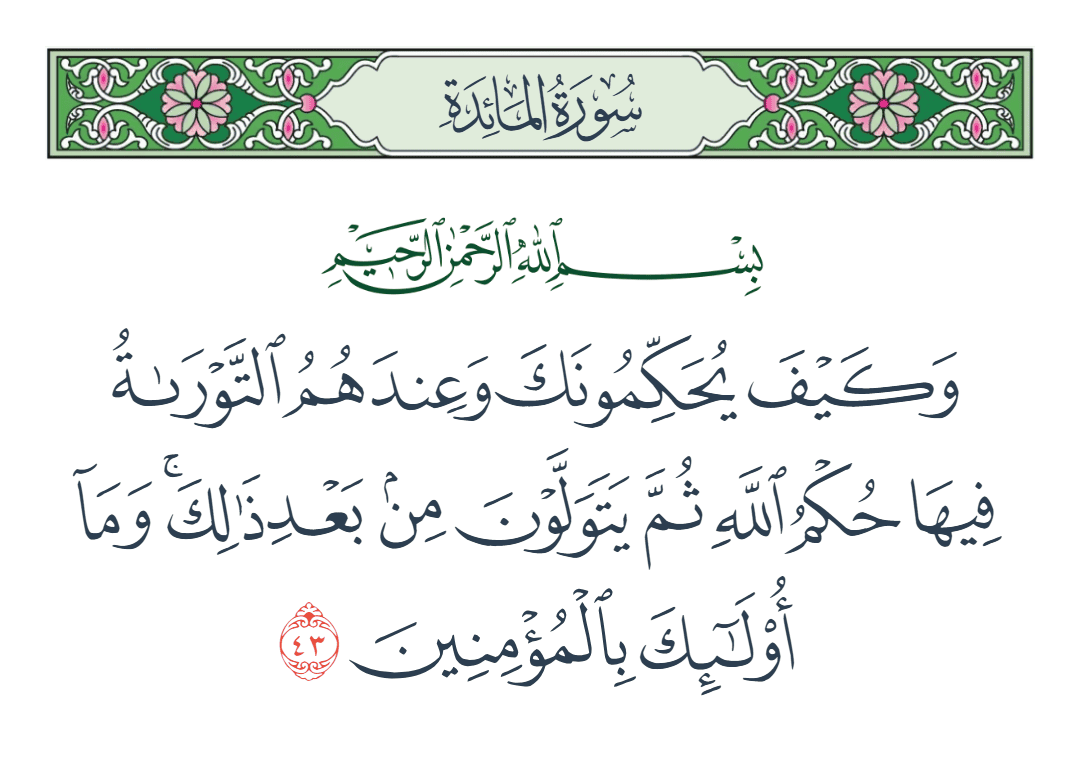 سُورَةُ المَائِدَةِ
بِسْمِ ٱللَّهِ ٱلرَّحْمَٰنِ ٱلرَّحِيمِ
وَكَيْفَ يُحَكِّمُونَكَ وَعِندَهُمُ ٱلتَّوْرَىٰةُ
فِيهَا حُكْمُ ٱللَّهِ ثُمَّ يَتَوَلَّوْنَ مِنۢ بَعْدِ ذَٰلِكَ ۚ وَمَآ
أُو۟لَـٰٓئِكَ بِٱلْمُؤْمِنِينَ ٤٣